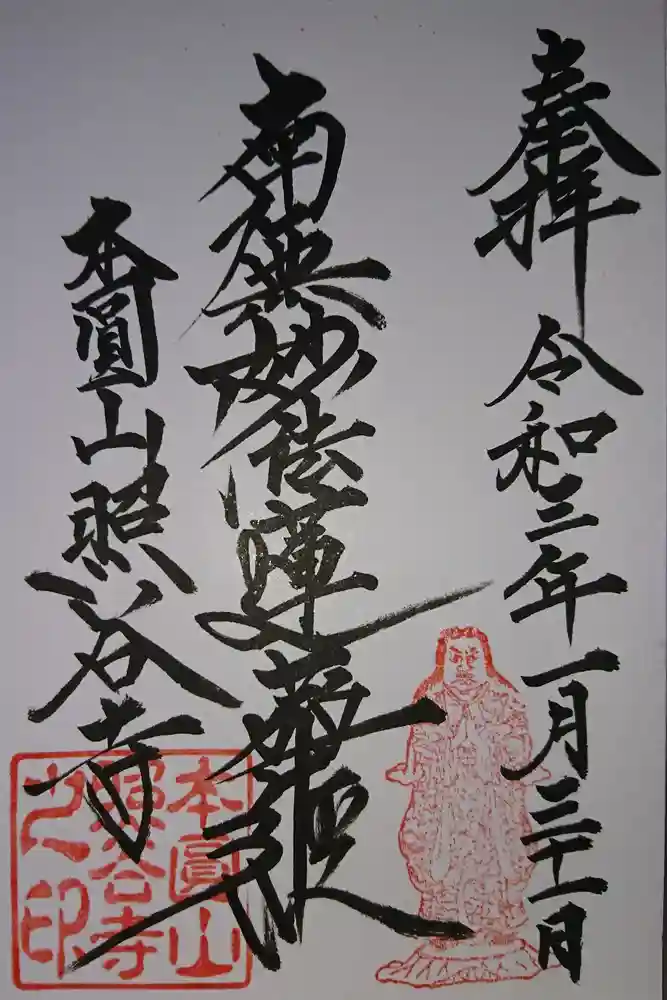 奉拝
令和三年一月三十一日
南無妙法蓮華経
本圓山照谷寺
本圓山
照谷寺
之印